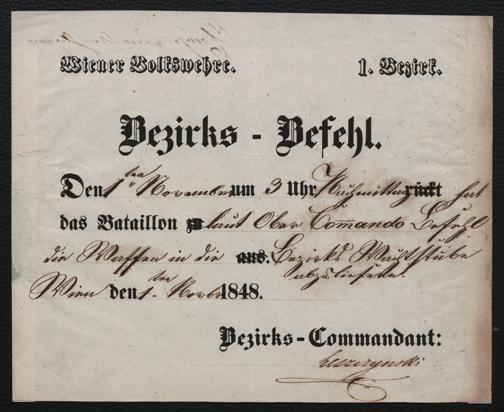 Wiener Volkswehre. 1. Bezirk.
Bezirks - Befehl.
Den 1ten November um 3 Uhr Nachmittag rückt hat
das Bataillon zu laut Ober Commando Befehl
die Waffen in die aus. Bezirks Wachtstube
abzuliefern.
Wien den 1. ten Novbr 1848.
Bezirks-Commandant:
Leszczynski